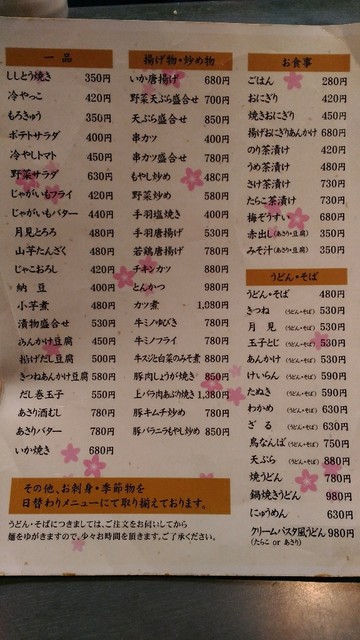 一品
ししとう焼き 350円
冷やっこ 420円
もろきゅう 350円
ポテトサラダ 400円
冷やしトマト 450円
野菜サラダ 630円
じゃがいもフライ 420円
じゃがいもバター 440円
月見とろろ 480円
山芋たんざく 480円
じゃこおろし 420円
納豆 400円
小芋煮 480円
漬物盛合せ 530円
あんかけ豆腐 450円
揚げだし豆腐 500円
きつねあんかけ豆腐 580円
だし巻玉子 550円
あさり酒むし 780円
あさりバター 780円
いか焼き 680円
揚げ物・炒め物
いか唐揚げ 680円
野菜天ぷら盛合せ 700円
天ぷら盛合せ 850円
串カツ 400円
串カツ盛合せ 780円
もやし炒め 480円
野菜炒め 580円
手羽塩焼き 400円
手羽唐揚げ 530円
若鶏唐揚げ 780円
チキンカツ 880円
とんかつ 980円
カツ煮 1,080円
牛ミノゆびき 780円
牛ミノフライ 780円
牛スジと白菜のみそ煮 880円
豚肉しょうが焼き 850円
上バラ肉あぶり焼き 1,380円
豚キムチ炒め 780円
豚バラニラもやし炒め 850円
お食事
ごはん 280円
おにぎり 420円
焼きおにぎり 450円
揚げおにぎりあんかけ 680円
のり茶漬け 420円
うめ茶漬け 480円
さけ茶漬け 730円
たらこ茶漬け 730円
梅ぞうすい 680円
赤出し(あさり・豆腐) 350円
みそ汁(あさり・豆腐) 350円
うどん・そば
うどん・そば 480円
きつね(うどん・そば) 530円
月見(うどん・そば) 530円
玉子とじ(うどん・そば) 530円
あんかけ(うどん・そば) 530円
けいらん(うどん・そば) 590円
たぬき(うどん・そば) 590円
わかめ(うどん・そば) 630円
ざる(うどん・そば) 630円
鳥なんば(うどん・そば) 750円
天ぷら(うどん・そば) 880円
焼うどん 780円
鍋焼きうどん 980円
にゅうめん 630円
クリームパスタ風うどん 980円
(たらこ or あさり)
その他、お刺身・季節物を
日替わりメニューにて取り揃えております。
うどん・そばにつきましては、ご注文をお伺いしてから
麺をゆがきますので、少々お時間を頂きます。ご了承ください。